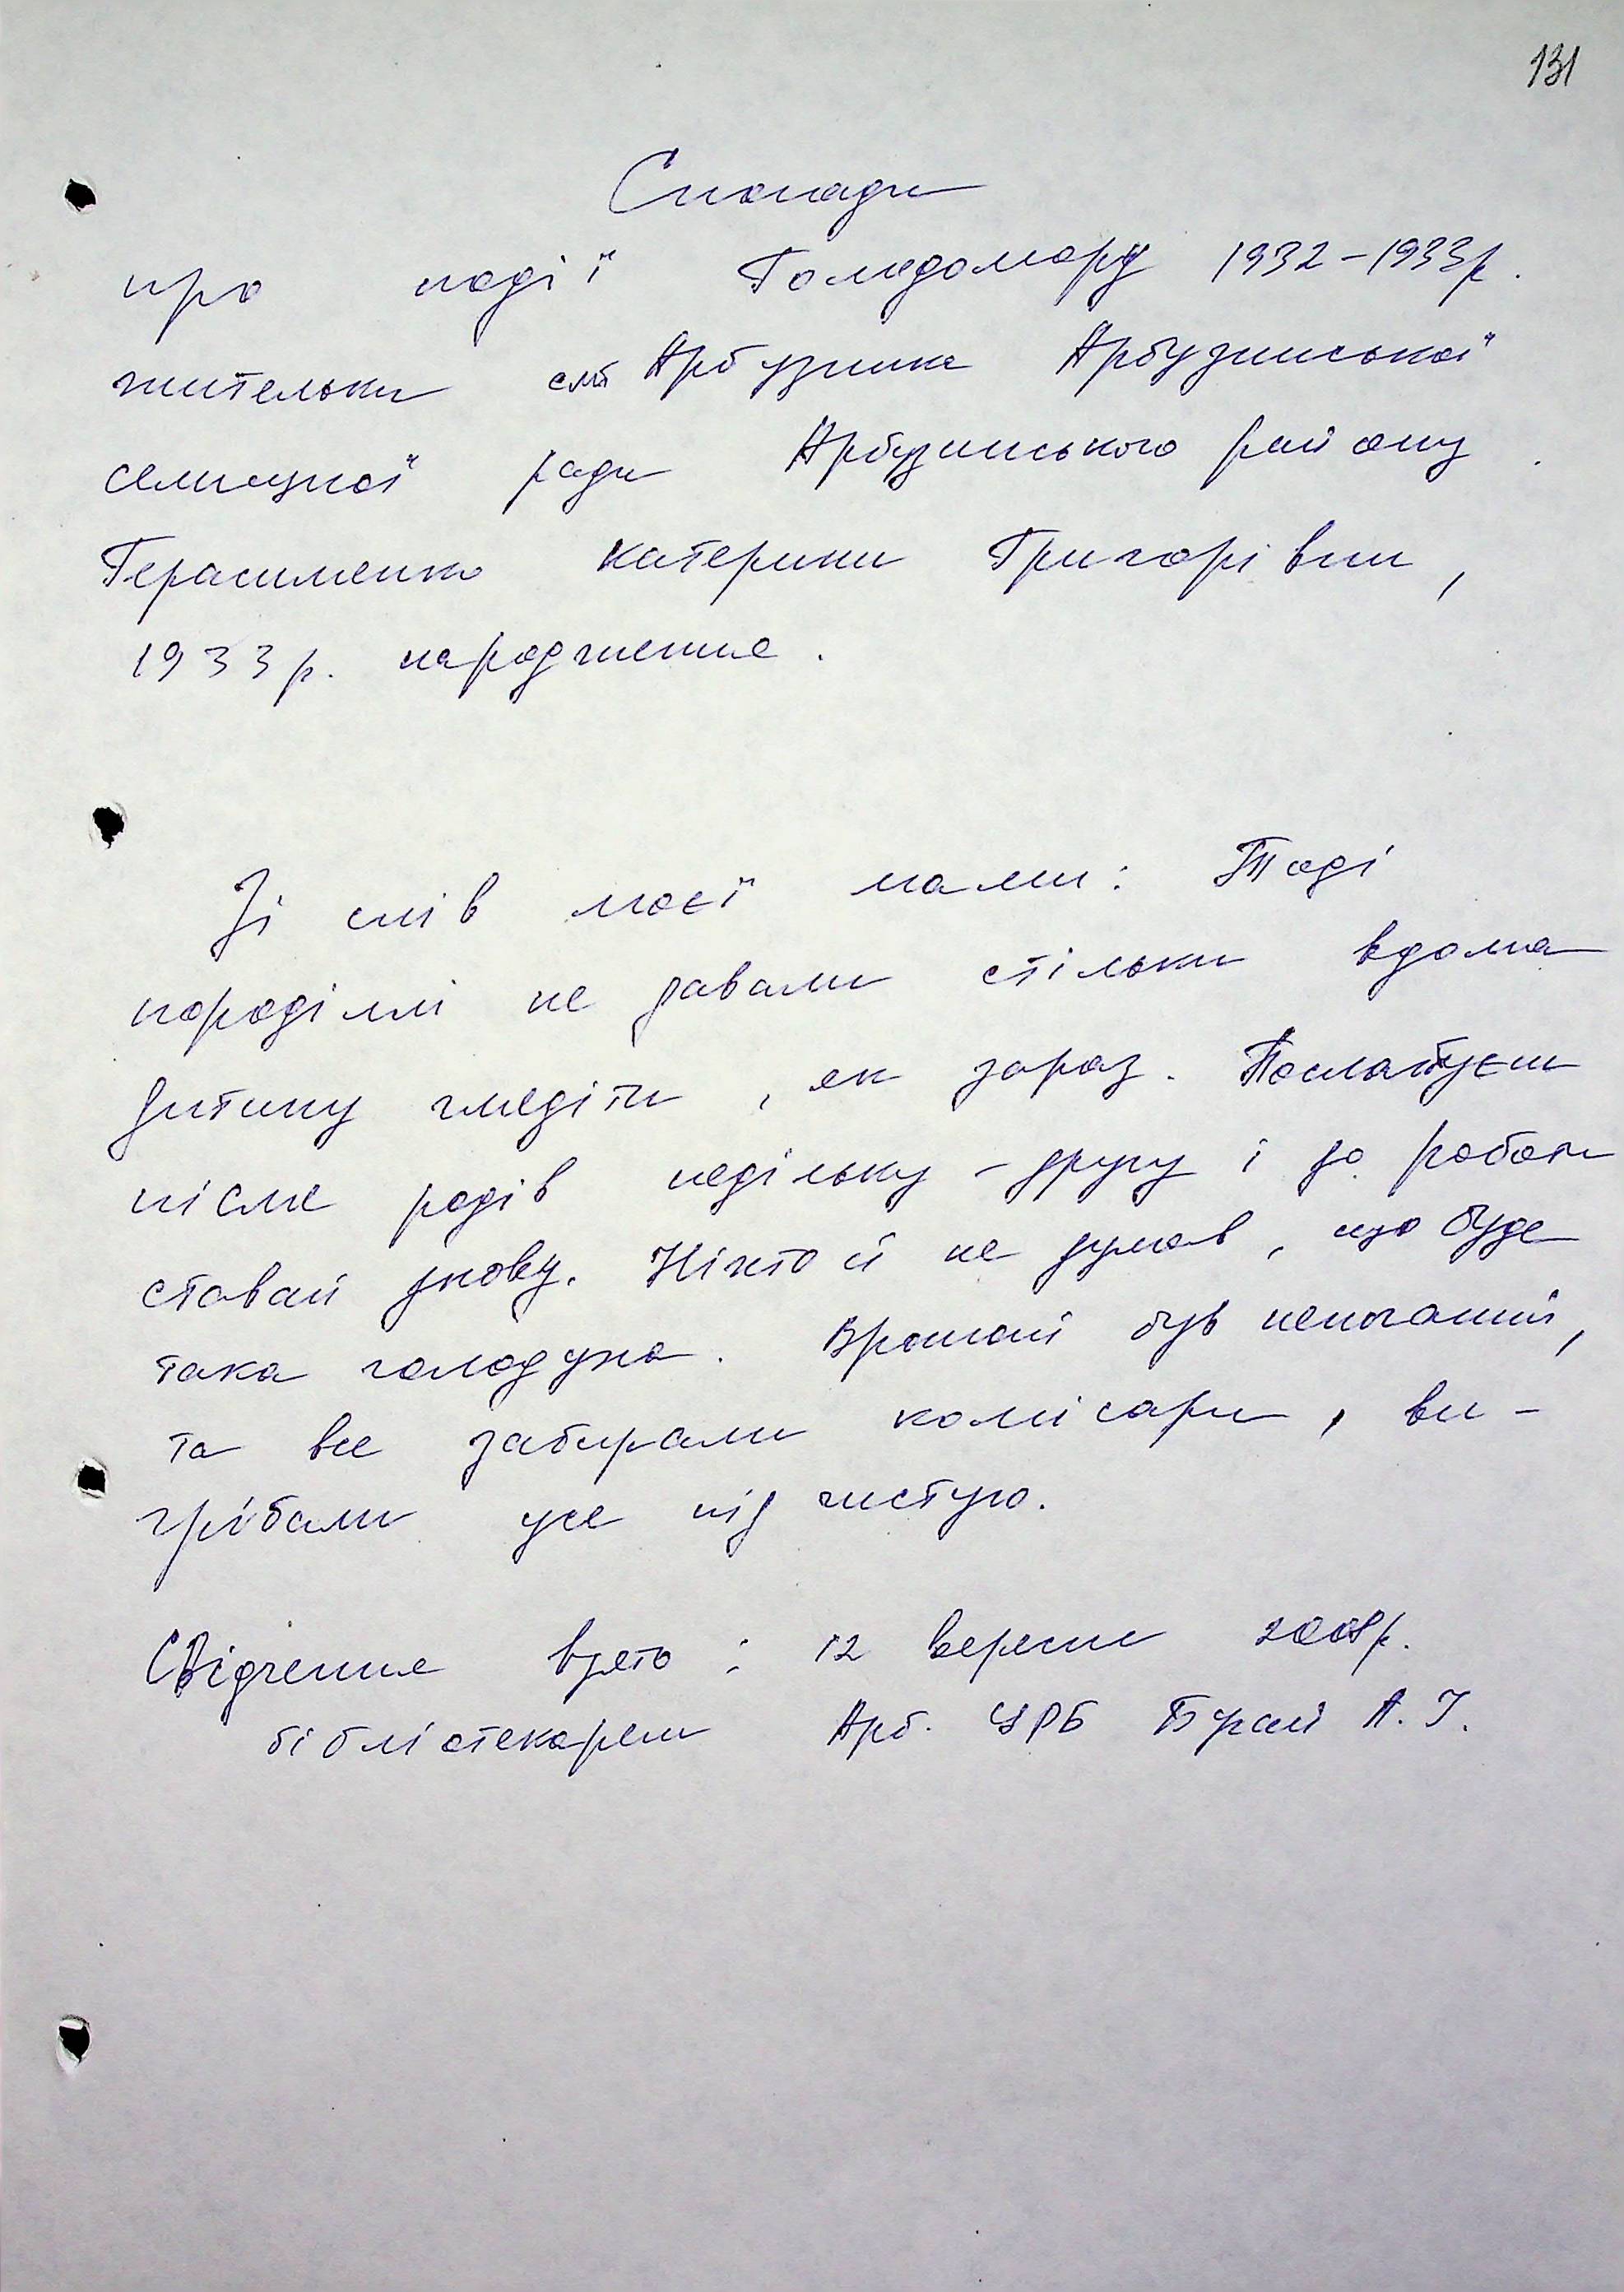 131
Спогади
про події Голодомору 1932-1933р.
жительки смт Арбузинка Арбузинської
селищної ради Арбузинського району.
Герасименко Катерини Григорівни,
1933р. народження.
Зі слів моєї мами: Тоді
породіллі не давали стільки вдома
дитину глядіти, як зараз. Послабуєш
після родів недільку-другу і до роботи
ставай знову. Ніхто й не думав, що буде
така голодуха. Врожай був непоганий,
та все забирали комісари, ви-
грібали усе під чистую.
Свідчення взято: 12 вересня 2008р.
бібліотекарем Арб. ЦРБ А. І.